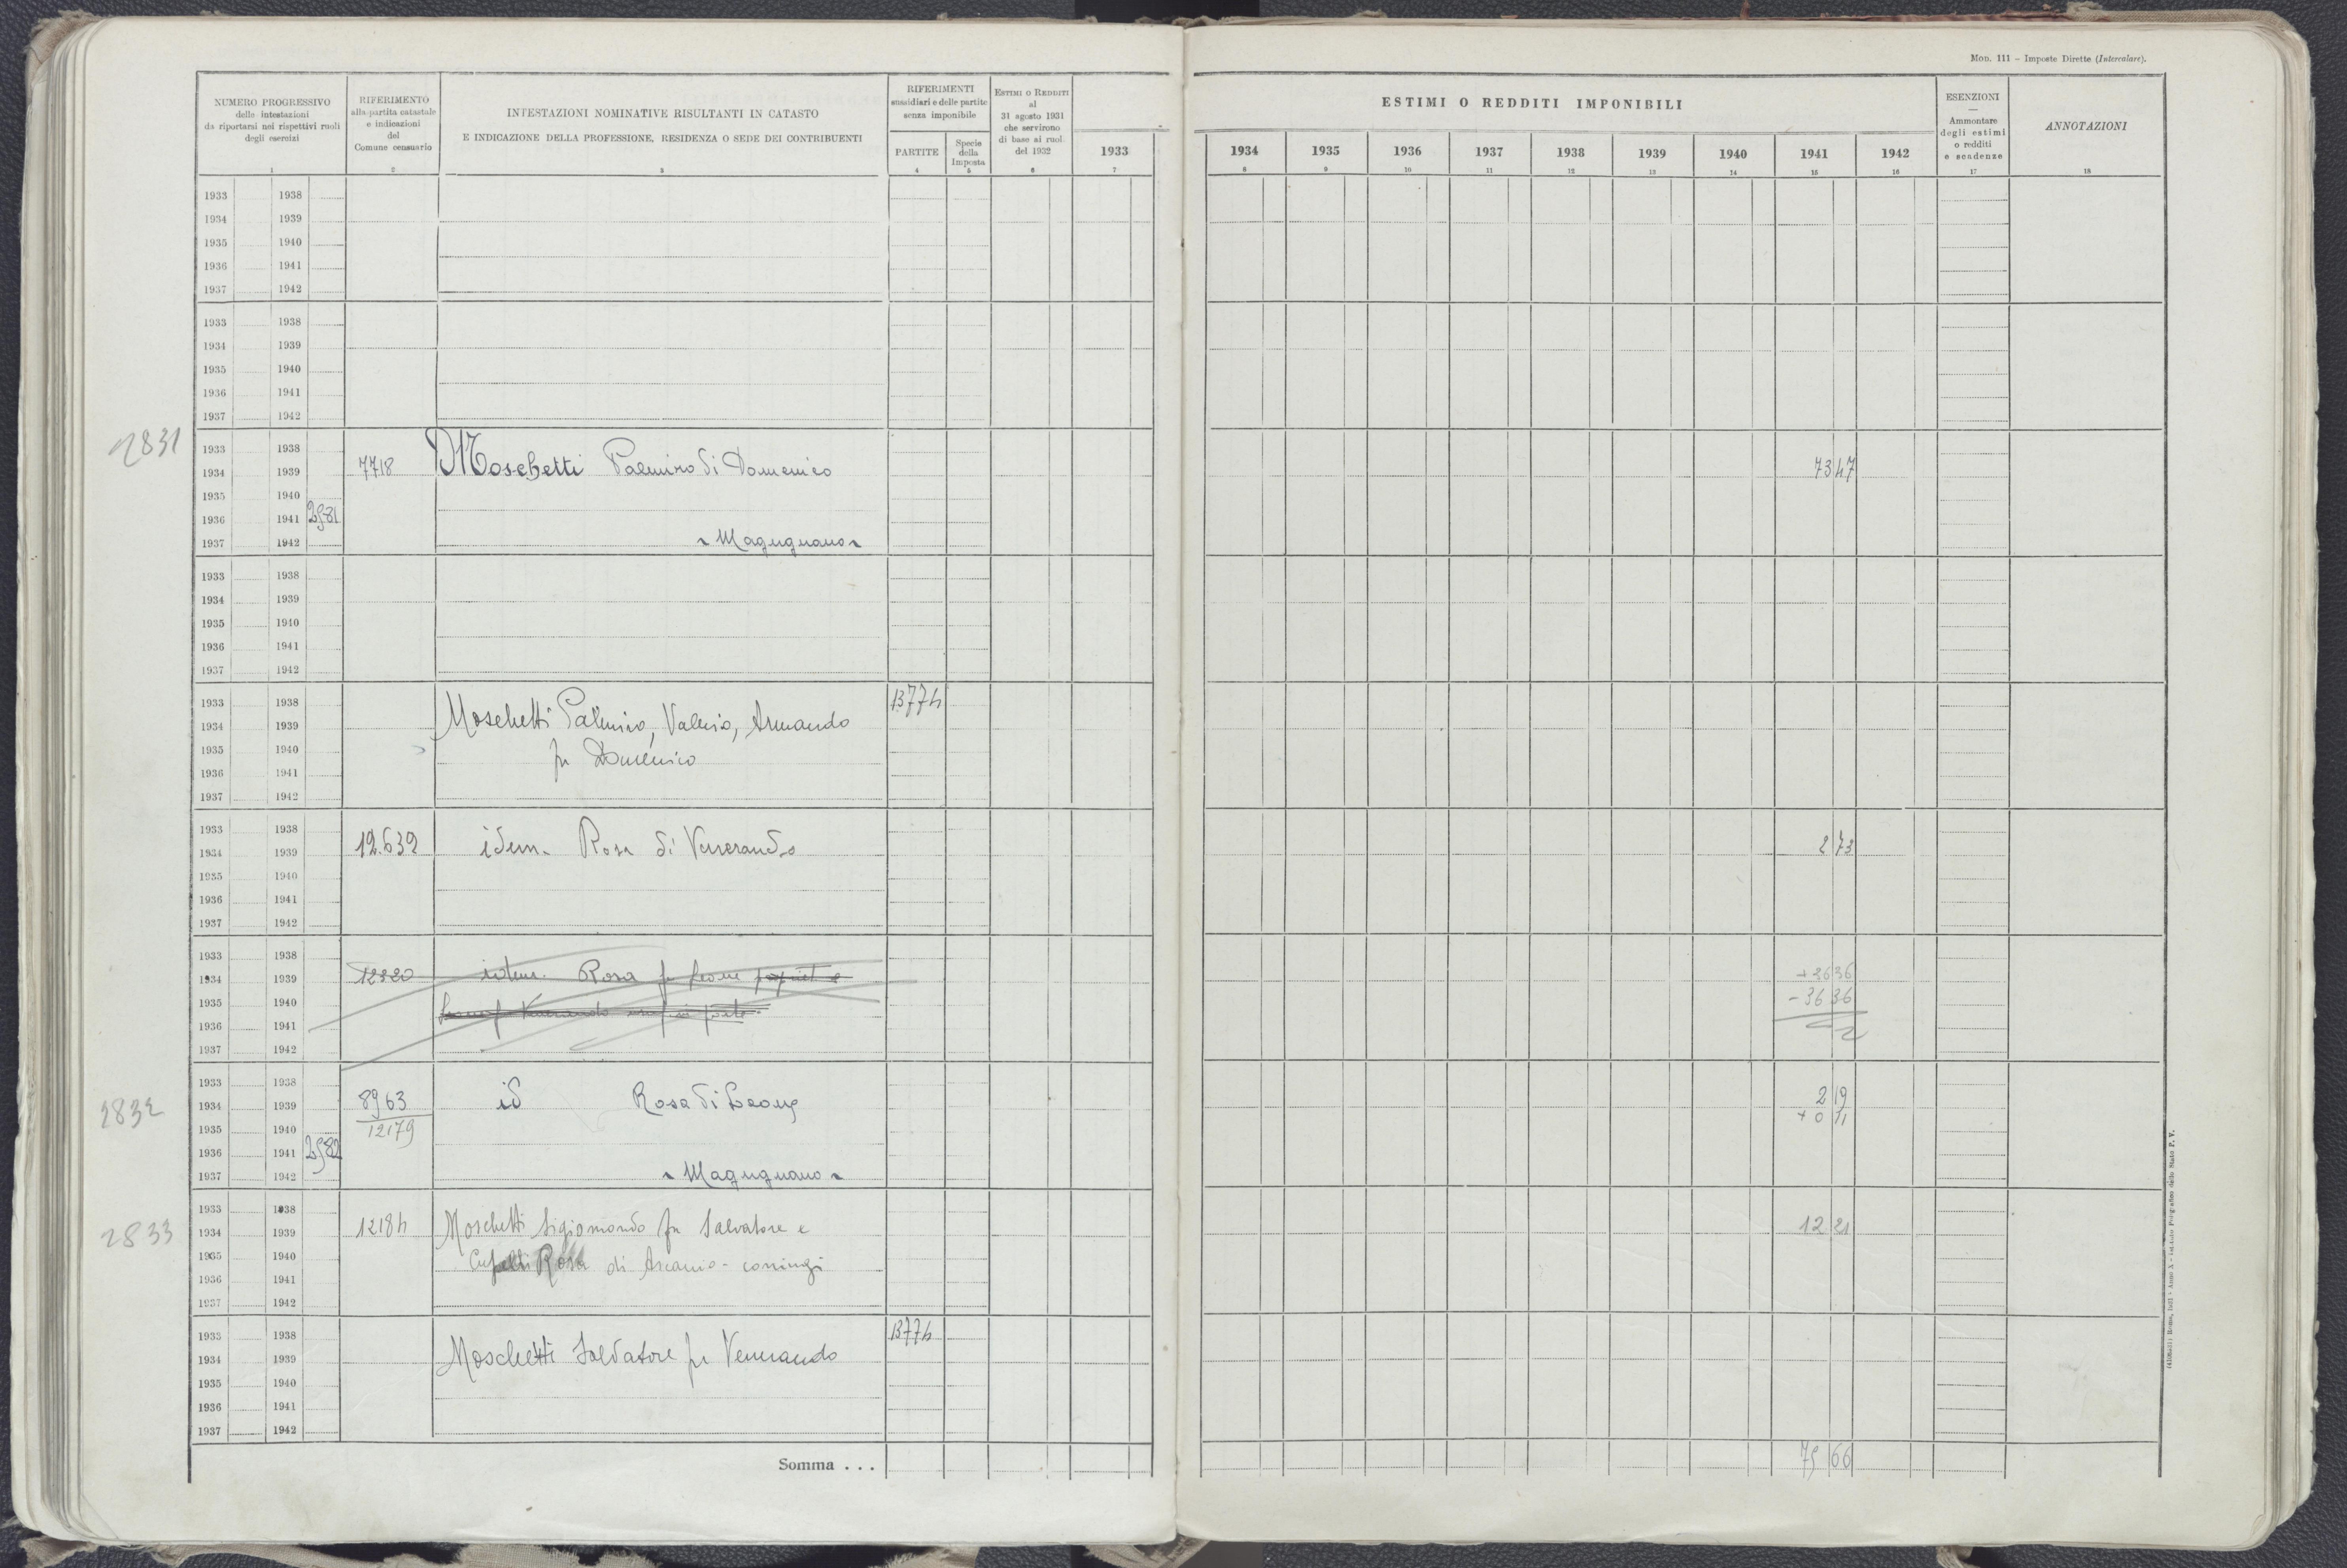 Mod. 111 – Imposte Dirette (Intercalare).
NUMERO PROGRESSIVO
delle intestazioni
da riportarsi nei rispettivi ruoli
degli esercizi
1
RIFERIMENTO
alla partita catastale
e indicazioni
del
Comune censuario
2
INTESTAZIONI NOMINATIVE RISULTANTI IN CATASTO
E INDICAZIONE DELLA PROFESSIONE, RESIDENZA O SEDE DEI CONTRIBUENTI
3
RIFERIMENTI
sussidiari e delle partite
senza imponibile
PARTITE
4
Specie
della
Imposta
5
Estimi o Redditi
al
31 agosto 1931
che servirono
di base ai ruoli
del 1932
6
1933
7
ESTIMI O REDDITI IMPONIBILI
1934 1935 1936 1937 1938 1939 1940 1941 1942
8 9 10 11 12 13 14 15 16
ESENZIONI
—
Ammontare
degli estimi
o redditi
e scadenze
17
ANNOTAZIONI
18
1933 1938
1934 1939
1935 1940
1936 1941
1937 1942
1933 1938
1934 1939
1935 1940
1936 1941
1937 1942
2831
1933 1938
1934 1939 7718 Moschetti Palmiro di Domenico 73 47
1935 1940
1936 1941 2581
1937 1942 Magugnano
1933 1938
1934 1939
1935 1940
1936 1941
1937 1942
1933 1938 13774
1934 1939 Moschetti Palmiro, Valerio, Armando
1935 1940 fu Domenico
1936 1941
1937 1942
1933 1938
1934 1939 12.639 idem. Rosa di Venerando 2 73
1935 1940
1936 1941
1937 1942
1933 1938
1934 1939 12320 idem. Rosa fu Leone + 36 36
1935 1940 Venerando - 36 36
1936 1941
1937 1942
1933 1938
2832 1934 1939 8963 id Rosa di Leone 2 19
1935 1940 12179 + 0 11
1936 1941 2582
1937 1942 Magugnano
1933 1938
2833 1934 1939 12184 Moschetti Sigismondo fu Salvatore e 12 21
1935 1940 Rosa di Ascanio - coniugi
1936 1941
1937 1942
1933 1938 13774
1934 1939 Moschetti Salvatore fu Venerando
1935 1940
1936 1941
1937 1942
Somma . . . 75 66